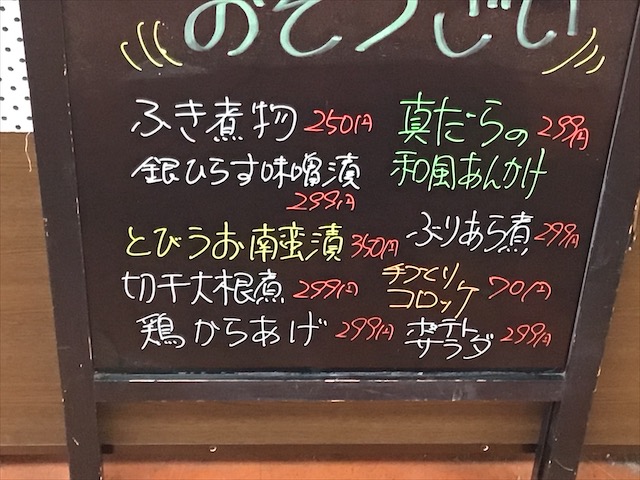 おそうざい
ふき煮物 250円
銀ひらす味噌漬
299円
とびうお南蛮漬 350円
切干大根煮 299円
鶏からあげ 299円
真だらの 299円
和風あんかけ
ぶりあら煮 299円
手づくり
コロッケ 70円
ポテト
サラダ 299円